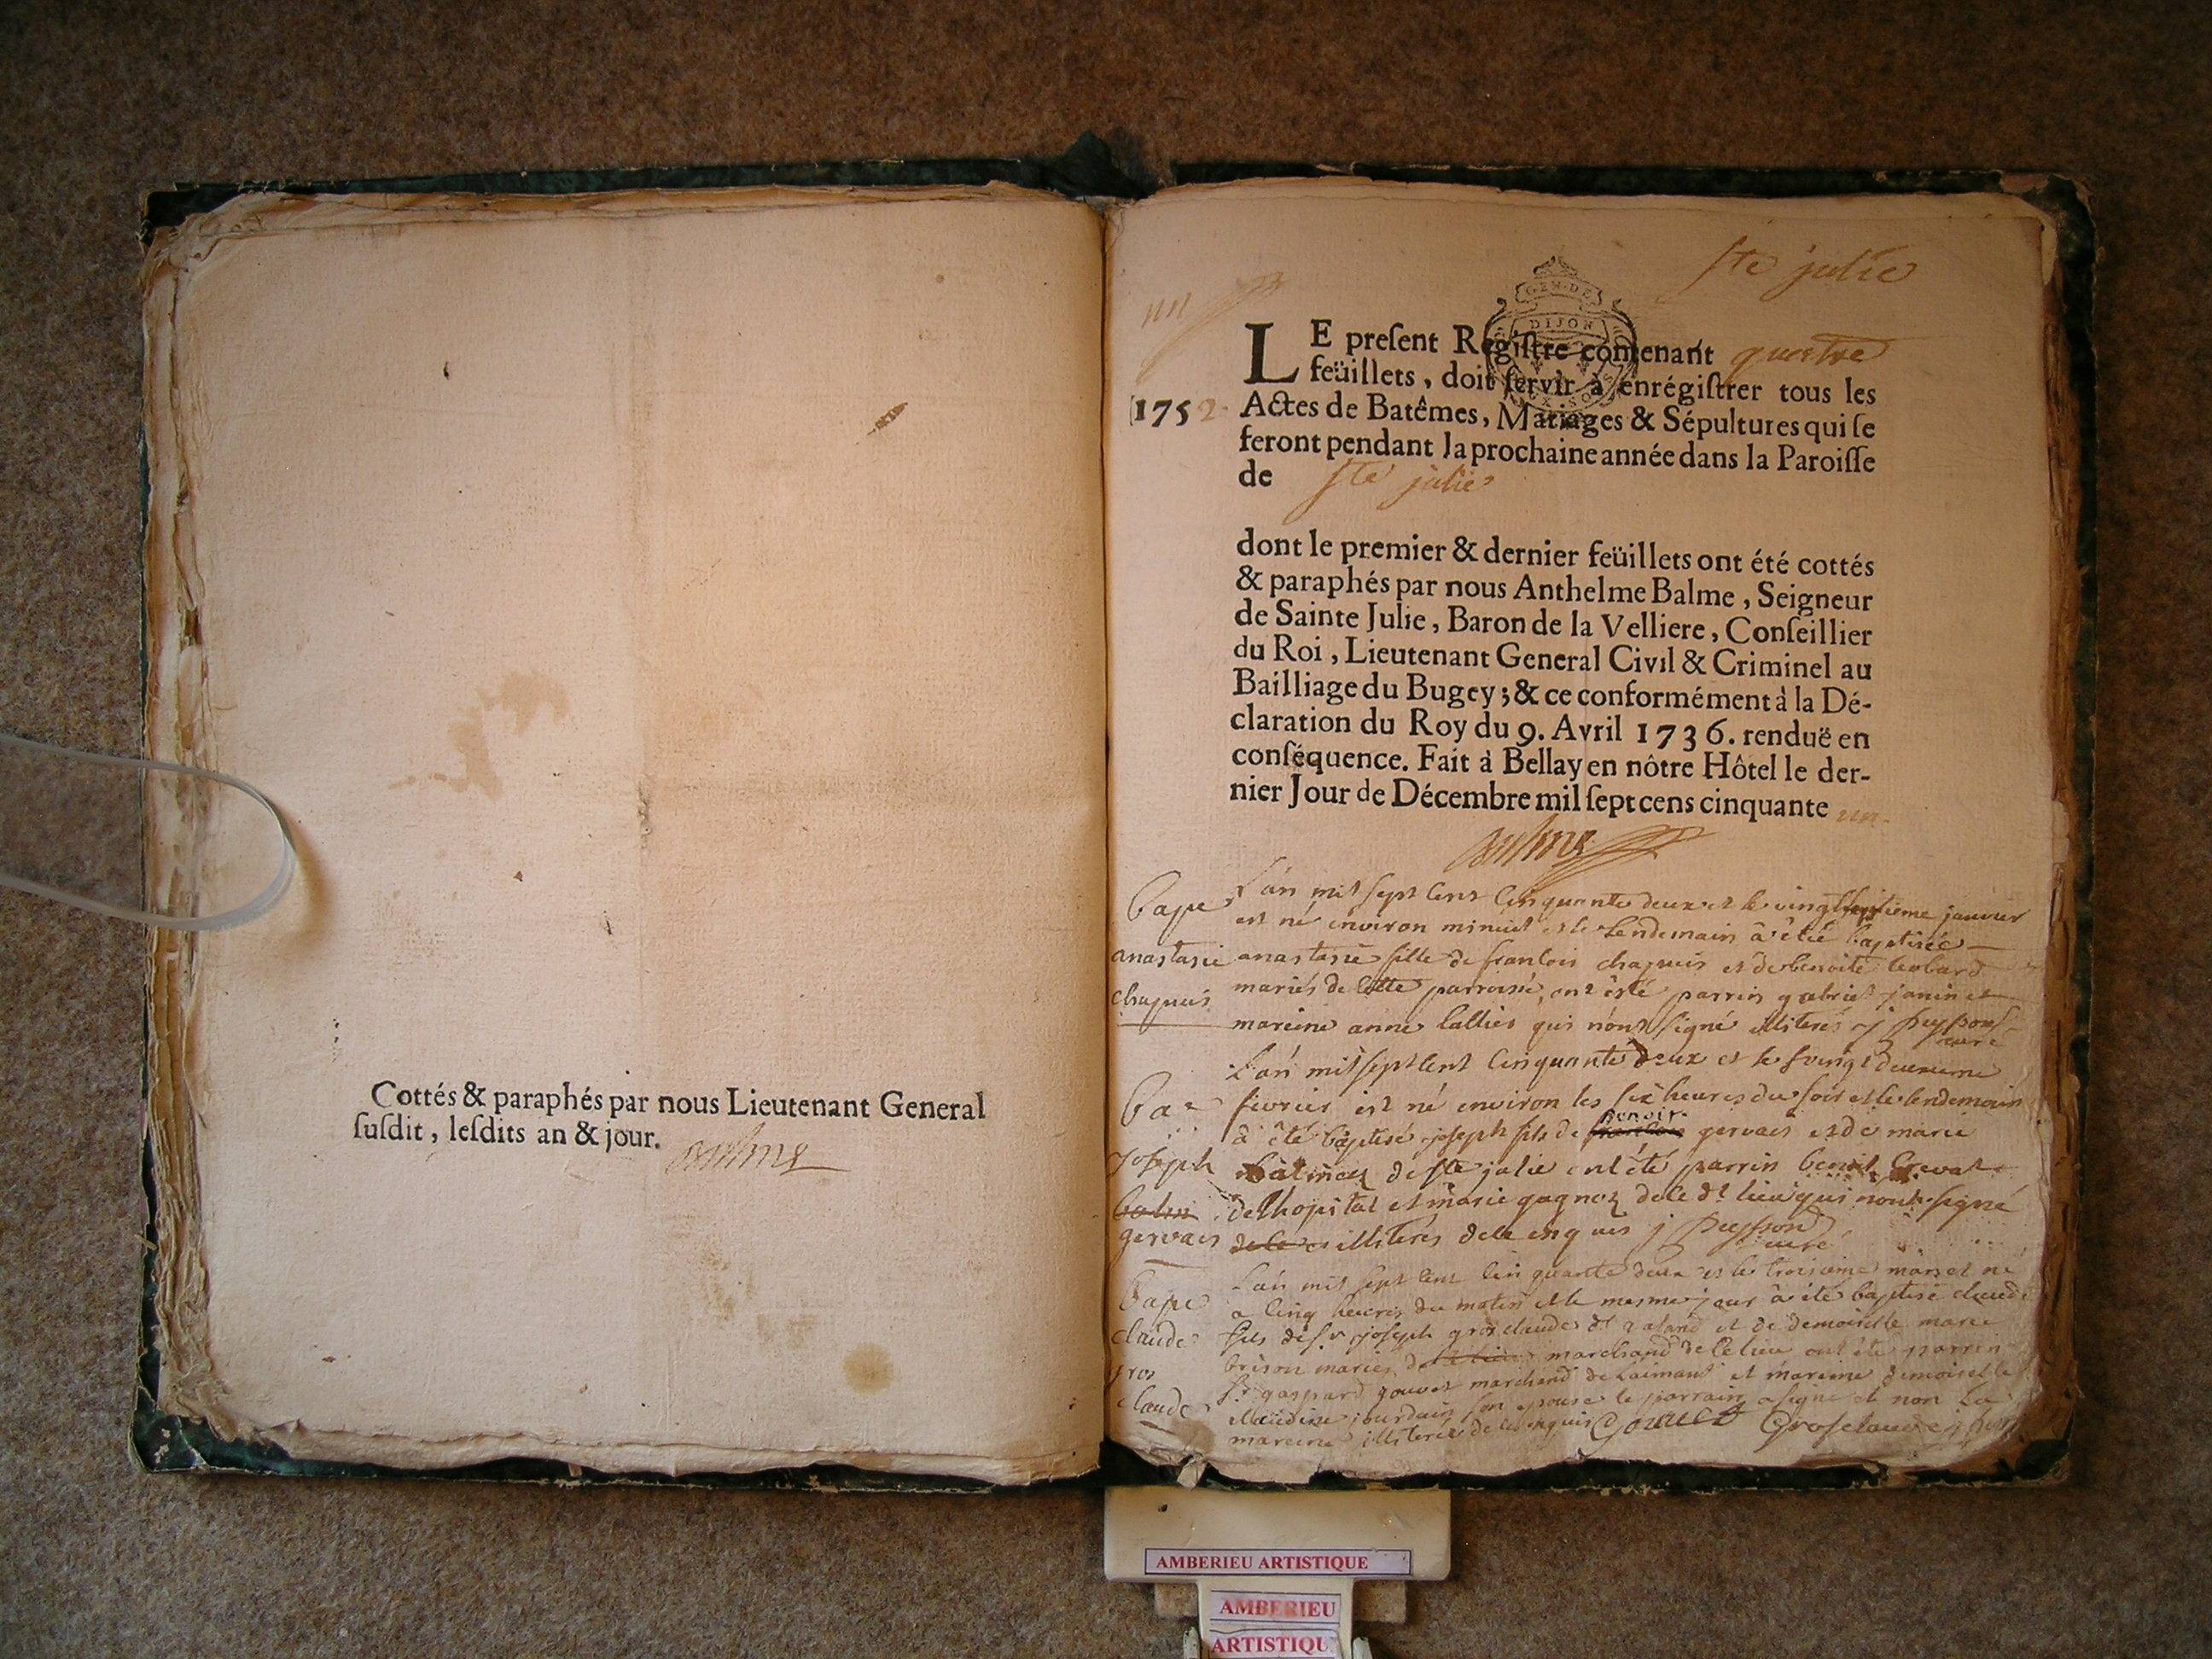 Cottés & paraphés par nous Lieutenant General
susdit, lesdits an & jour.
Ste julie
un
GEN. DE
DIJON
LE present Registre contenant quatre
feüillets, doit servir à enrégistrer tous les
1752. Actes de Batêmes, Mariages & Sépultures qui se
feront pendant la prochaine année dans la Paroisse
de Ste julie
dont le premier & dernier feüillets ont été cottés
& paraphés par nous Anthelme Balme, Seigneur
de Sainte Julie, Baron de la Velliere, Conseillier
du Roi, Lieutenant General Civil & Criminel au
Bailliage du Bugey; & ce conformément à la Dé-
claration du Roy du 9. Avril 1736. renduë en
conséquence. Fait à Bellay en nôtre Hôtel le der-
nier Jour de Décembre mil sept cens cinquante un.
Balme
Bape
anastasie
chapuis
L'an mil sept cent cinquante deux et le janvier
est né environ minuit et le lendemain a été baptisée
anastasie fille de francois chapuis et de benoite
mariés de cette parroisse, ont été parrin gabriel janin et
mareine anne lallier qui n'ont signé illiterés j peysson
curé
Bap
Joseph
gervais
L'an mil sept cent cinquante deux et le vingt deuxieme
fevrier est né environ les six heures du soir et le lendemain
a été baptisé joseph fils de benoit gervais et de marie
de ste julie ont été parrin benoit
de lhopital et marie gagnoz de ce dt lieu qui n'ont signé
illiterés de ce enquis j peysson
curé
Bape
claude
gros
claude
L'an mil sept cent cinquante deux et le troisieme mars est né
a cinq heures du matin et le mesme jour a été baptisé claude
fils de sr joseph grosclaude et de demoiselle marie
brison mariés marchand de ce lieu ont été parrin
sr gaspard gouvet marchand de Laimant et mareine demoiselle
claudine jourdain son epouse le parrain a signé et non la
mareine illiterée de ce enquis Gouvet Grosclaude j
AMBERIEU ARTISTIQUE
AMBERIEU
ARTISTIQU